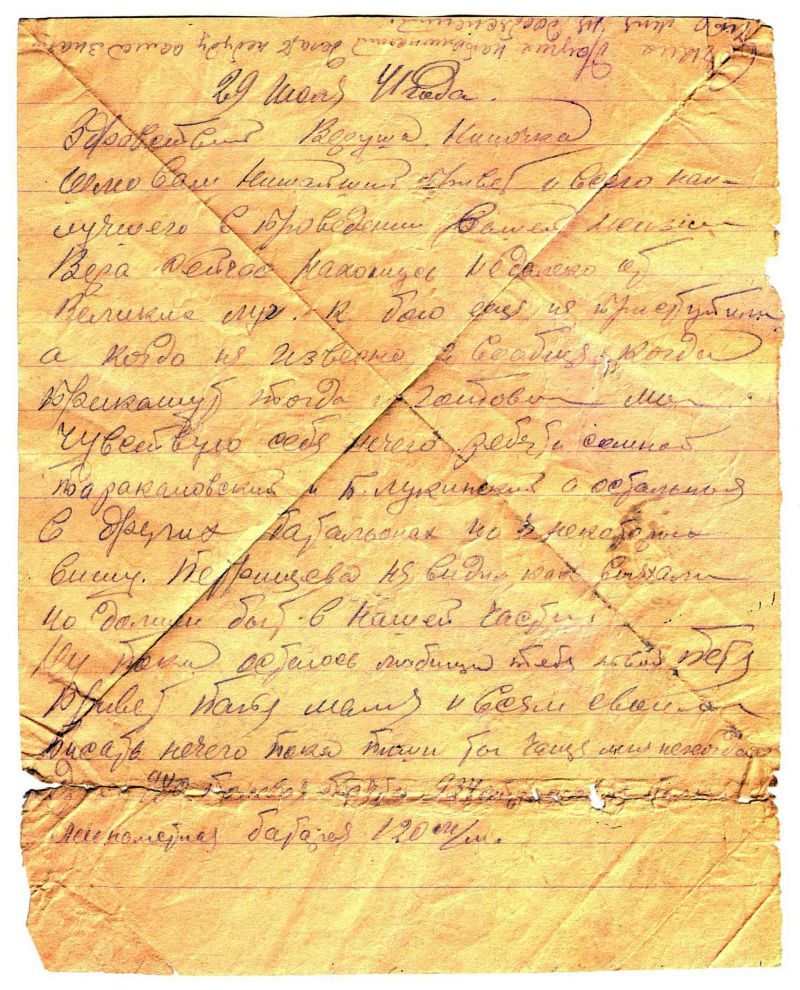 29 Июля 41 года.
Здравствуй Веруша, Ниночка
Шлю Вам нишайший привет и всего наи-
лучшего в проведении Вашей жизни
Вера сейчас нахожусь недалеко от
Великие лук. к бою еще не приступили
а когда не известно сообщя когда
прикажут тогда и готовы мы
Чувствую себя нечего ребята со мной
Таракановский и Б.лукинский а остальныя
в других батальонах но я некоторых
вижу. не видил как выехали
но должен быт в нашей части.
Ну пока остаюсь любящи тебя твой Петя
Привет папы мамы и всем своим
писать нечего пока пиши ты чаще мне некогда
полевая почта
минометная батарея 120 м/м.